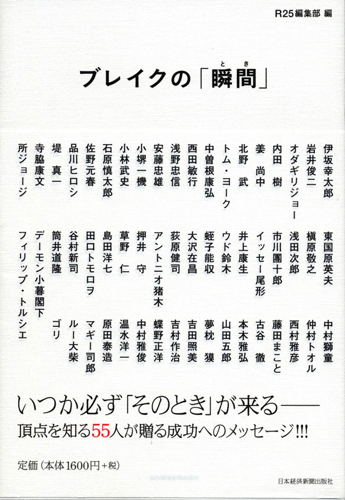 R25編集部 編
ブレイクの「瞬間」
とき
伊坂幸太郎 東国原英夫 中村獅童
岩井俊二 槇原敬之 仲村トオル
オダギリジョー 浅田次郎 西村雅彦
内田 樹 市川團十郎 藤田まこと
姜 尚中 イッセー尾形 古谷 徹
北野 武 井上康生 本木雅弘
トム・ヨーク ウド鈴木 山田五郎
中曽根康弘 蛭子能収 夢枕 獏
西田敏行 大沢在昌 吉田照美
浅野忠信 荻原健司 吉村作治
安藤忠雄 アントニオ猪木 蝶野正洋
小堺一機 押井 守 中村雅俊
小林武史 草野 仁 温水洋一
石原慎太郎 島田洋七 原田泰造
佐野元春 田口トモロヲ マギー司郎
品川ヒロシ 谷村新司 ルー大柴
堤 真一 筒井道隆 ゴリ
寺脇康文 デーモン小暮閣下
所ジョージ フィリップ・トルシエ
いつか必ず「そのとき」が来る――
頂点を知る55人が贈る成功へのメッセージ!!!
定価(本体1600円+税)
日本経済新聞出版社